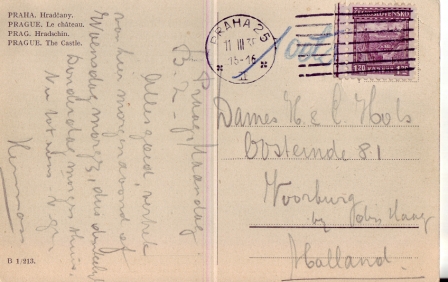 PRAHA. Hradčany.
PRAGUE. Le château.
PRAG. Hradschin.
PRAGUE. The Castle.
Praag, Maandag.
B. L.
Alles goed, vertrek
van hier morgenavond of
Woensdagmorgen, dus
Donderdag morgen thuis.
Herman
B 1/213.
PRAHA 25
11 III
15-16
1·20
Dames H & C Hols
Oosteinde 81
Voorburg
by den Haag
Holland